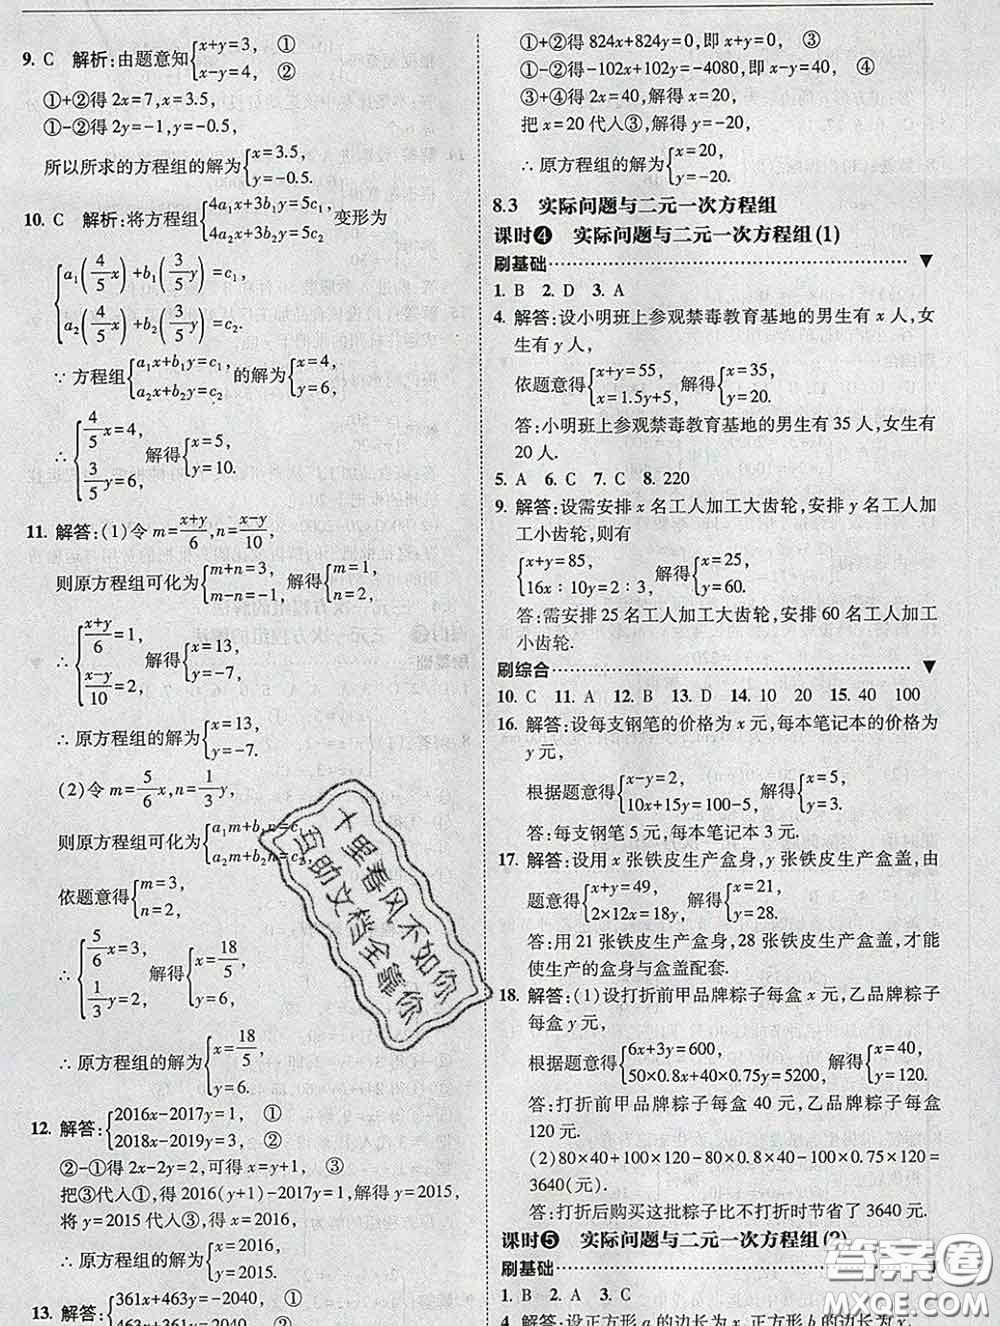 9. C 解析:由题意知{x+y=3, ①
x−y=4, ②
①+②得 2x=7,x=3.5,
①−②得 2y=−1,y=−0.5,
所以所求的方程组的解为{x=3.5,
y=−0.5.
10. C 解析:将方程组{4a₁x+3b₁y=5c₁, 变形为
4a₂x+3b₂y=5c₂
{a₁(4/5x)+b₁(3/5y)=c₁,
a₂(4/5x)+b₂(3/5y)=c₂.
∵方程组{a₁x+b₁y=c₁, 的解为{x=4,
a₂x+b₂y=c₂ y=6,
∴{4/5x=4, 解得{x=5,
3/5y=6, y=10.
11. 解答:(1)令 m=x+y/6,n=x−y/10,
则原方程组可化为{m+n=3, 解得{m=1,
m−n=−1, n=2,
∴{x+y/6=1, 解得{x=13,
x−y/10=2, y=−7,
∴原方程组的解为{x=13,
y=−7.
(2)令 m=5/6x,n=1/3y,
则原方程组可化为{a₁m+b₁n=c
a₂m+b₂n=c₂,
依题意得{m=3,
n=2,
∴{5/6x=3, 解得{x=18/5,
1/3y=2, y=6,
∴原方程组的解为{x=18/5,
y=6.
12. 解答:{2016x−2017y=1, ①
2018x−2019y=3, ②
②−①得 2x−2y=2,可得 x=y+1, ③
把③代人①,得 2016(y+1)−2017y=1,解得 y=2015,
将 y=2015 代人③,得 x=2016,
∴原方程组的解为{x=2016,
y=2015.
13. 解答:{361x+463y=−2040, ①
463x+361y=−2040, ②
①+②得 824x+824y=0,即 x+y=0, ③
①−②得−102x+102y=−4080,即 x−y=40, ④
③+④得 2x=40,解得 x=20,
把 x=20 代人③,解得 y=−20,
∴原方程组的解为{x=20,
y=−20.
8.3 实际问题与二元一次方程组
课时❹ 实际问题与二元一次方程组(1)
刷基础
1. B 2. D 3. A
4. 解答:设小明班上参观禁毒教育基地的男生有 x 人,女
生有 y 人,
依题意得{x+y=55, 解得{x=35,
x=1.5y+5, y=20.
答:小明班上参观禁毒教育基地的男生有 35 人,女生有
20 人.
5. A 6. C 7. C 8. 220
9. 解答:设需安排 x 名工人加工大齿轮,安排 y 名工人加
工小齿轮,则有
{x+y=85, 解得{x=25,
16x∶10y=2∶3, y=60.
答:需安排 25 名工人加工大齿轮,安排 60 名工人加工
小齿轮.
刷综合
10. C 11. A 12. B 13. D 14. 10 20 15. 40 100
16. 解答:设每支钢笔的价格为 x 元,每本笔记本的价格为
y 元,
根据题意得{x−y=2, 解得{x=5,
10x+15y=100−5, y=3.
答:每支钢笔 5 元,每本笔记本 3 元.
17. 解答:设用 x 张铁皮生产盒身,y 张铁皮生产盒盖,由
题意得{x+y=49, 解得{x=21,
2×12x=18y, y=28.
答:用 21 张铁皮生产盒身,28 张铁皮生产盒盖,才能
使生产的盒身与盒盖配套.
18. 解答:(1)设打折前甲品牌粽子每盒 x 元,乙品牌粽子
每盒 y 元,
根据题意得{6x+3y=600, 解得{x=40,
50×0.8x+40×0.75y=5200, y=120.
答:打折前甲品牌粽子每盒 40 元,乙品牌粽子每盒
120 元.
(2)80×40+100×120−80×0.8×40−100×0.75×120=
3640(元).
答:打折后购买这批粽子比不打折时节省了 3640 元.
课时❺ 实际问题与二元一次方程组(2)
刷基础
1. B 2. A 3. C
4. 解答:设正方形 a 的边长为 x,正方形 b 的边长为 y,
十里春风不如你
互助文档全靠你
答案圈
MXQE.COM